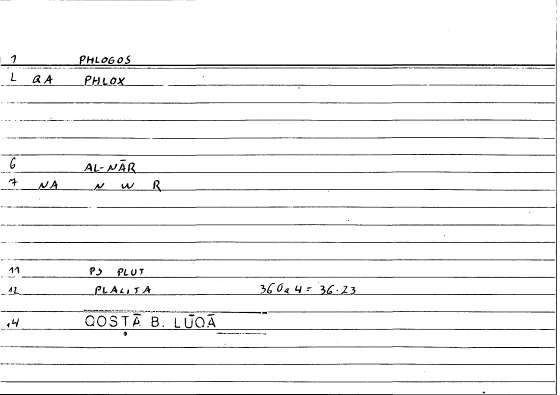 1 PHLOGOS
L QA PHLOX
6 AL-NĀR
7 NA N W R
11 PS PLUT
12 PLALITA 360a4 = 36.23
.4 QOSTĀ B. LŪQĀ